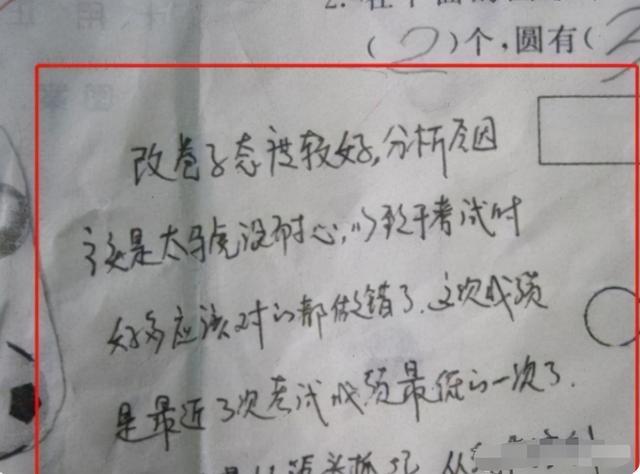 2. 在下面的
(2)个,圆有(3
改卷子态度较好,分析原因
该是太马虎没耐心,以致于考试时
好多应该对的都做错了.这次成绩
是最近3次考试成绩最低的一次了.